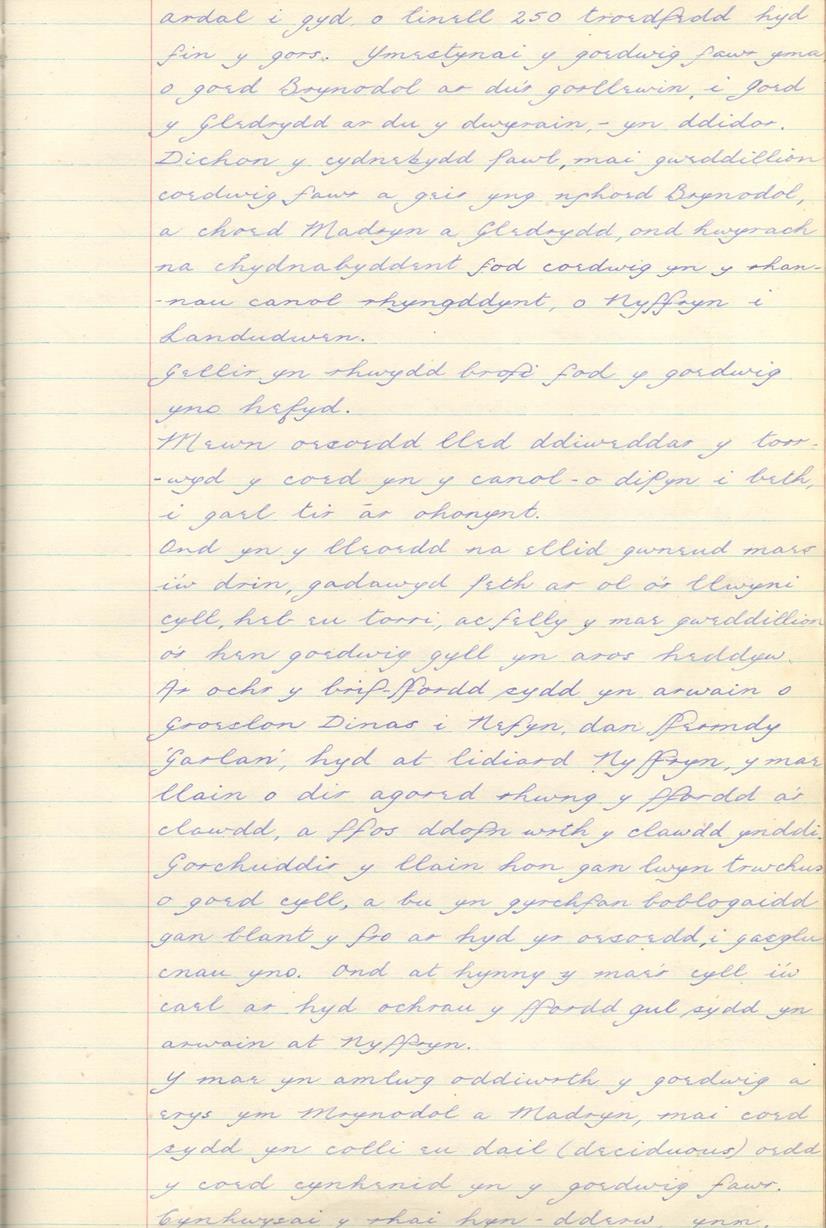 ardal i gyd, o linell 250 troedfedd hyd
fin y gors. Ymestynai y goedwig fawr yma
o goed Brynodol ar du'r gorllewin, i goed
y Gledrydd ar du y dwyrain, - yn ddidor.
Dichon y cydnebydd pawb, mai gweddillion
coedwig fawr a geir yng nghoed Brynodol,
a choed Madryn a Gledrydd, ond hwyrach
na chydnabyddent fod coedwig yn y rhan-
-nau canol rhyngddynt, o Nyffryn i
Landudwen.
Gellir yn rhwydd brofi fod y goedwig
yno hefyd.
Mewn oesoedd lled ddiweddar y torr-
-wyd y coed yn y canol - o dipyn i beth,
i gael tir âr ohonynt.
Ond yn y lleoedd na ellid gwneud maes
i'w drin, gadawyd peth ar ol o'r llwyni
cyll, heb eu torri, ac felly y mae gweddillion
o'r hen goedwig gyll yn aros heddyw.
Ar ochr y brif-ffordd sydd yn arwain o
Groeslon Dinas i Nefyn, dan ffermdy
'Garlan', hyd at lidiard Nyffryn, y mae
llain o dir agored rhwng y ffordd a'r
clawdd, a ffos ddofn wrth y clawdd ynddi.
Gorchuddir y llain hon gan lwyn trwchus
o goed cyll, a bu yn gyrchfan boblogaidd
gan blant y fro ar hyd yr oesoedd, i gasglu
cnau yno. Ond at hynny y mae'r cyll i'w
cael ar hyd ochrau y ffordd gul sydd yn
arwain at Nyffryn.
Y mae yn amlwg oddiwrth y goedwig a
erys ym Mrynodol a Madryn, mai coed
sydd yn colli eu dail (deciduous) oedd
y coed cynhenid yn y goedwig fawr.
Cynhwysai y rhai hyn - dderw, ynn,